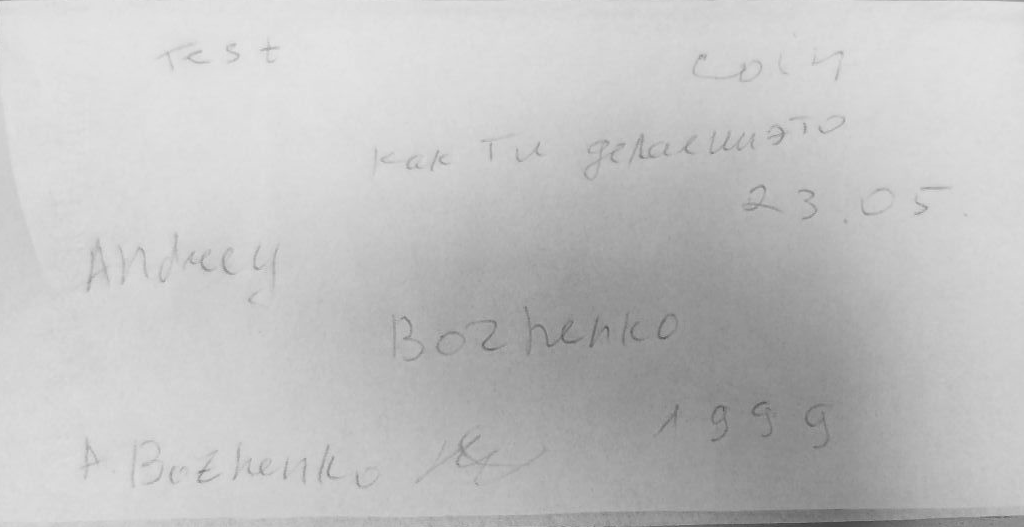 Test
как ти делаешь это
23.05.
Andreey
Bozhenko
1999
A. Bozhenko